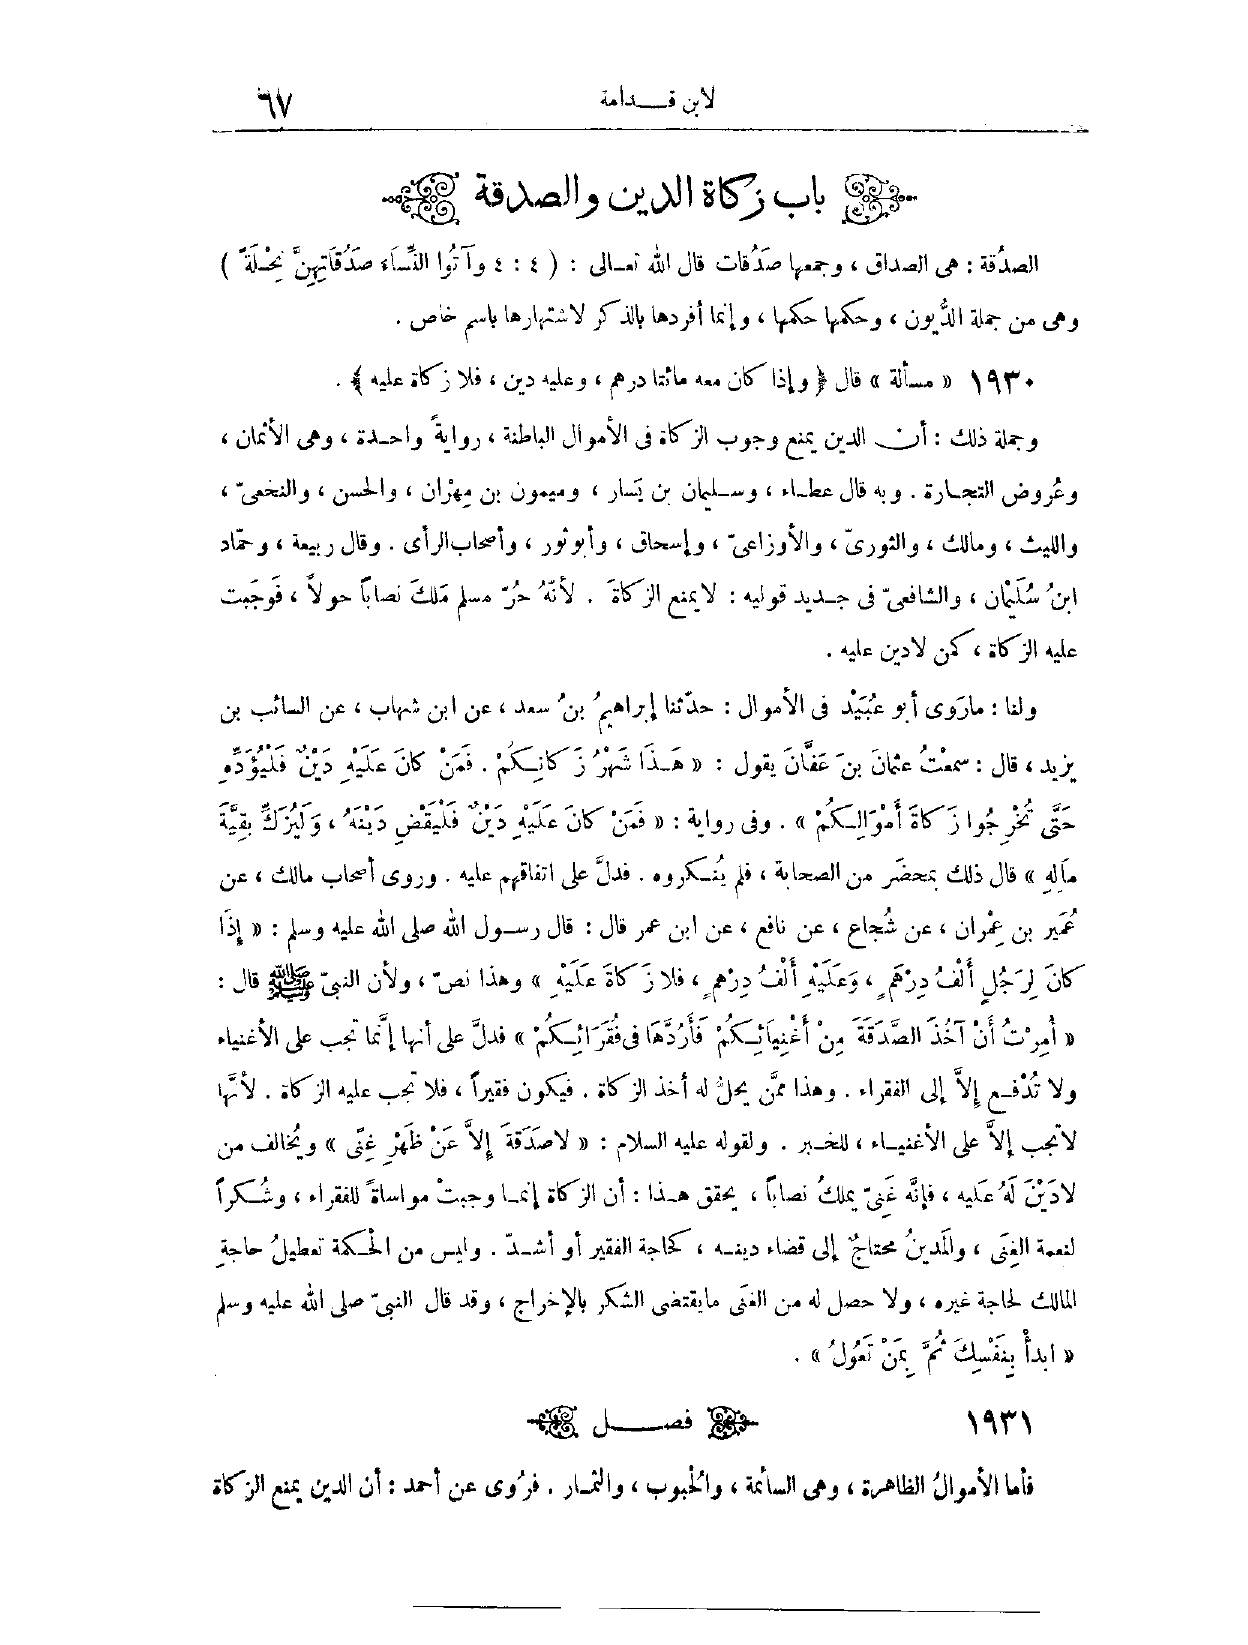 لابن قدامة
٦٧
باب زكاة الدين والصدقة
الصدُقة : هى الصداق ، وجمعها صَدُقات قال الله تعالى : ( ٤ : ٤ وآتُوا النِّسَاءَ صَدُقَاتِهِنَّ نِحْلَةً )
وهى من جملة الدُّيون ، وحكمها حكمها ، وإنما أفردها بالذكر لاشتهارها باسم خاص .
١٩٣٠ « مسألة » قال ﴿ وإذا كان معه مائتا درهم ، وعليه دين ، فلا زكاة عليه ﴾ .
وجملة ذلك : أن الدين يمنع وجوب الزكاة فى الأموال الباطنة ، روايةً واحدة ، وهى الأثمان ،
وعُروض التجارة . وبه قال عطاء ، وسليمان بن يَسار ، وميمون بن مِهْران ، والحسن ، والنخعىّ ،
والليث ، ومالك ، والثورىّ ، والأوزاعىّ ، وإسحاق ، وأبو ثور ، وأصحاب الرأى . وقال ربيعة ، وحمّاد
ابنُ سُلَيْمان ، والشافعىّ فى جديد قوليه : لا يمنع الزكاةَ . لأنّهُ حُرّ مسلم مَلَكَ نصاباً حولاً ، فَوجَبت
عليه الزكاة ، كمن لا دين عليه .
ولنا : مارَوى أبو عُبَيْد فى الأموال : حدّثنا إبراهيمُ بنُ سعد ، عن ابن شهاب ، عن السائب بن
يزيد ، قال : سمعْتُ عثمانَ بنَ عَفَّانَ يقول : « هَذَا شَهْرُ زَكَاتِكُمْ . فَمَنْ كانَ عَلَيْهِ دَيْنٌ فَلْيُؤَدِّهِ
حَتَّى تُخْرِجُوا زَكَاةَ أَمْوَالِكُمْ » . وفى رواية : « فَمَنْ كانَ عَلَيْهِ دَيْنٌ فَلْيَقْضِ دَيْنَهُ ، وَلْيُزَكِّ بَقِيَّةَ
مَالِهِ » قال ذلك بمحضَر من الصحابة ، فلم يُنْكروه . فدلَّ على اتفاقهم عليه . وروى أصحاب مالك ، عن
عُمَير بن عِمْران ، عن شُجاع ، عن نافع ، عن ابن عمر قال : قال رسول الله صلى الله عليه وسلم : « إِذَا
كانَ لِرَجُلٍ أَلْفُ دِرْهَمٍ ، وَعَلَيْهِ أَلْفُ دِرْهمٍ ، فلا زَكَاةَ عَلَيْهِ » وهذا نصّ ، ولأن النبىّ ﷺ قال :
« أُمِرْتُ أَنْ آخُذَ الصَّدَقَةَ مِنْ أَغْنِيَائِكُمْ فَأَرُدَّهَا فى فُقَرَائِكُمْ » فدلَّ على أنها إنَّما تجب على الأغنياء
ولا تُدْفع إلاَّ إلى الفقراء . وهذا ممَّن يحلُّ له أخذ الزكاة . فيكون فقيراً ، فلا تجب عليه الزكاة . لأنَّها
لا تجب إلاَّ على الأغنياء ، للخبر . ولقوله عليه السلام : « لاصَدَقةَ إلاَّ عَنْ ظَهْرِ غِنًى » ويُخالف من
لادَيْنَ لَهُ عَلَيه ، فإنَّه غَنِىّ يملكُ نصاباً ، يحقق هذا : أن الزكاة إنما وجبتْ مواساةً للفقراء ، وشُكراً
لنعمة الغِنَى ، والمدينُ محتاجٌ إلى قضاء دينه ، كحاجة الفقير أو أشدّ . وليس من الحكمة تعطيلُ حاجةِ
المالك لحاجة غيره ، ولا حصل له من الغنَى مايقتضى الشكر بالإخراج ، وقد قال النبىّ صلى الله عليه وسلم
« ابدأْ بِنَفْسِكَ ثُمَّ بِمَنْ تَعُولُ » .
١٩٣١ فصل
فأما الأموالُ الظاهرة ، وهى السائمة ، والحُبوب ، والثمار . فرُوى عن أحمد : أن الدين يمنع الزكاة